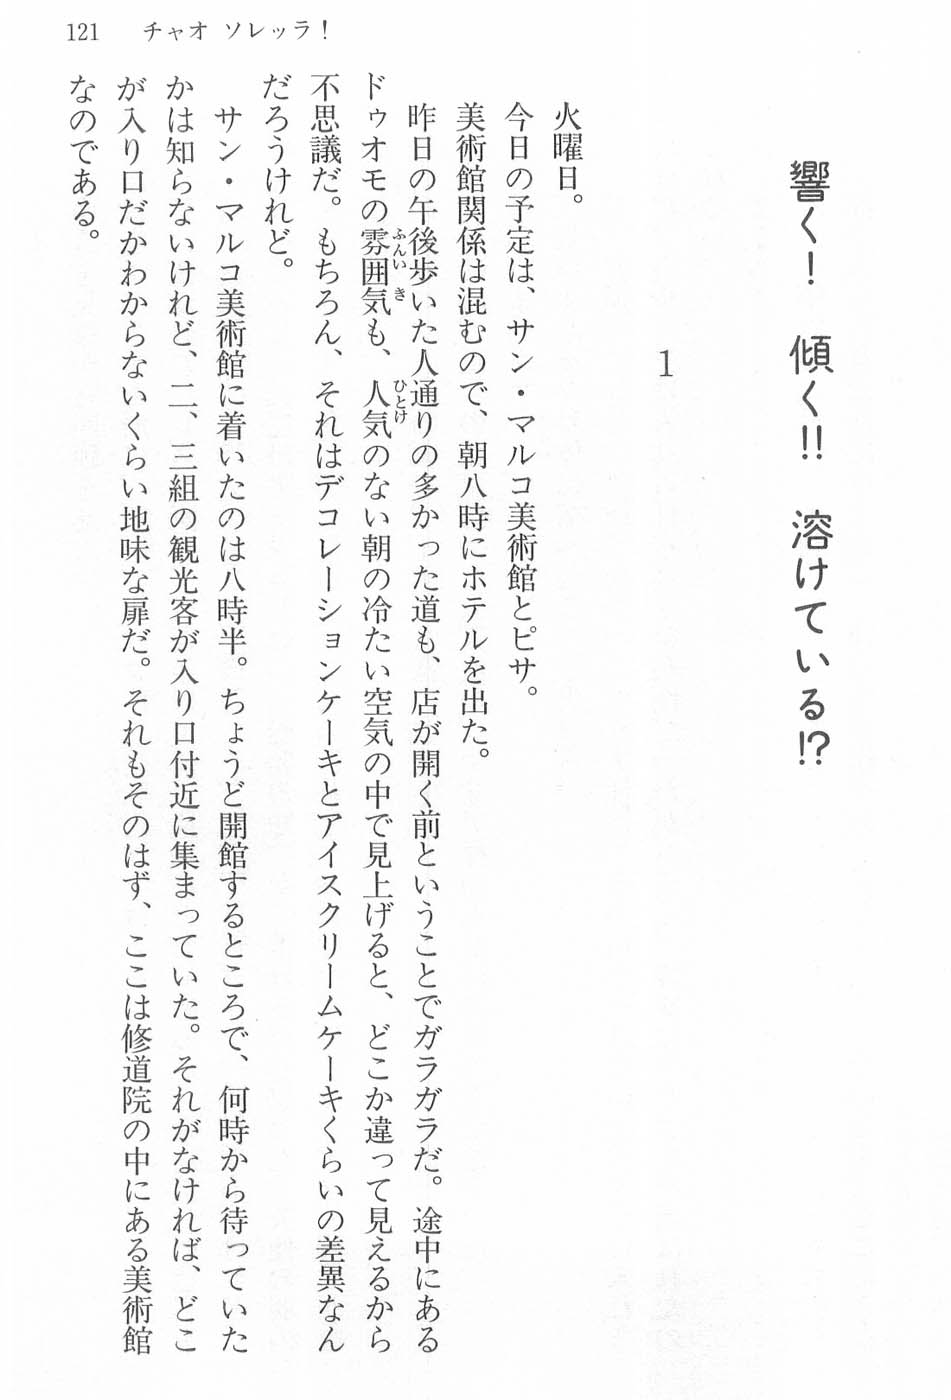 121　チャオ ソレッラ！
響く！　傾く!!　溶けている!?
1
火曜日。
今日の予定は、サン・マルコ美術館とピサ。
美術館関係は混むので、朝八時にホテルを出た。
昨日の午後歩いた人通りの多かった道も、店が開く前ということでガラガラだ。途中にある
ドゥオモの雰囲気も、人気のない朝の冷たい空気の中で見上げると、どこか違って見えるから
ふんいき
ひとけ
不思議だ。もちろん、それはデコレーションケーキとアイスクリームケーキくらいの差異なん
だろうけれど。
サン・マルコ美術館に着いたのは八時半。ちょうど開館するところで、何時から待っていた
かは知らないけれど、二、三組の観光客が入り口付近に集まっていた。それがなければ、どこ
が入り口だかわからないくらい地味な扉だ。それもそのはず、ここは修道院の中にある美術館
なのである。